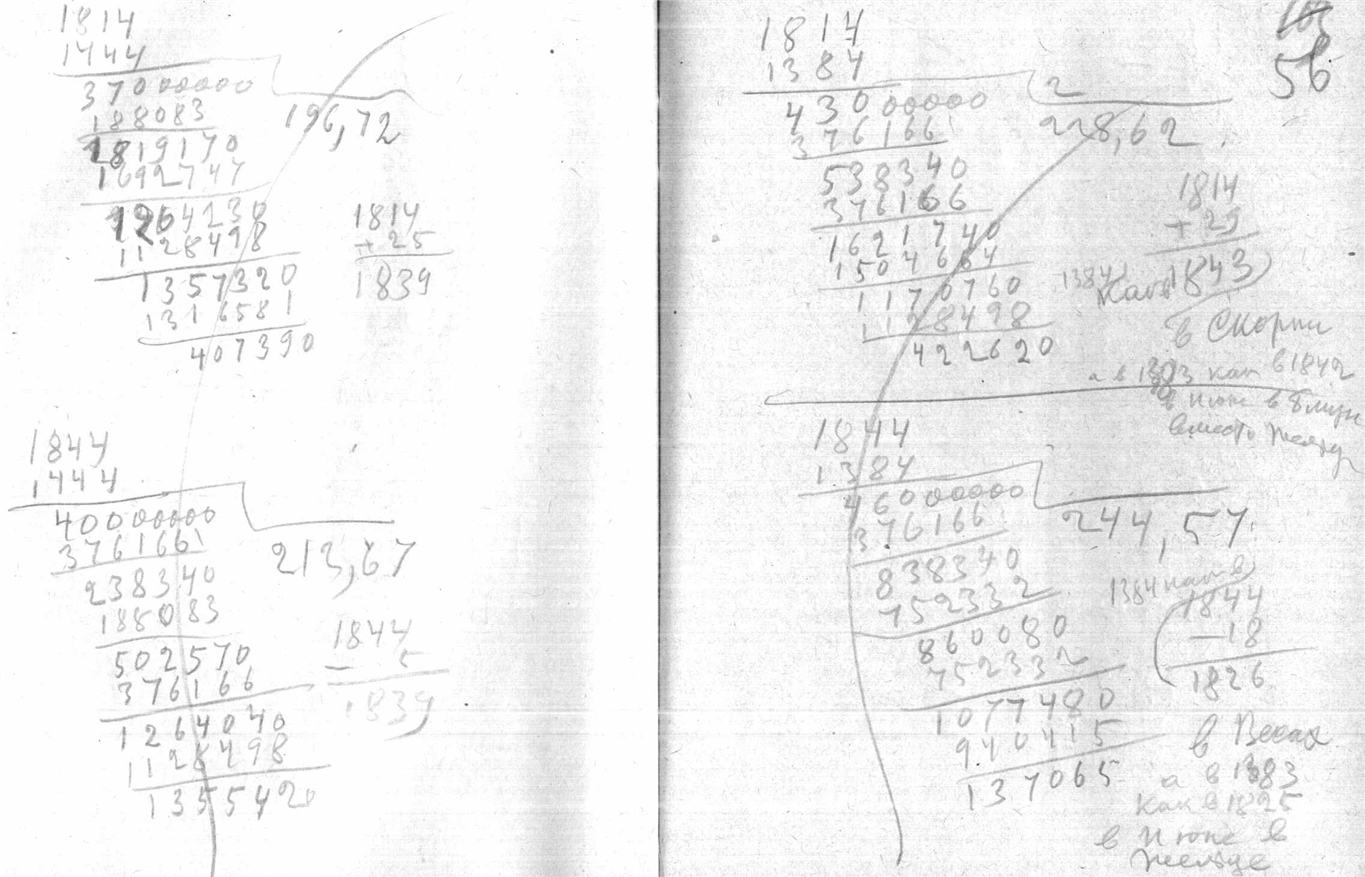 1814
1444
370000000
188083
196,72
1819170
1692747
1264230
1128498
1357320
1316581
407390
1814
+25
1839
1844
1444
4000000000
376166
213,67
238340
188083
502570
376166
1264040
1128498
135542
1844
- 5
1839
56
1814
1384
43000000
376166
2
228,62
538340
376166
1621740
1504664
1170760
1128498
422620
1814
+ 29
1384
1843
в Скорпи
как в 1842
в июне в Близн
вместо
1844
1384
46000000
376166
244,57
838340
752332
860080
752332
1077480
940415
137065
1384 как в
1844
-18
1826
в Весах
а в 1383
как в 1825
в июне в